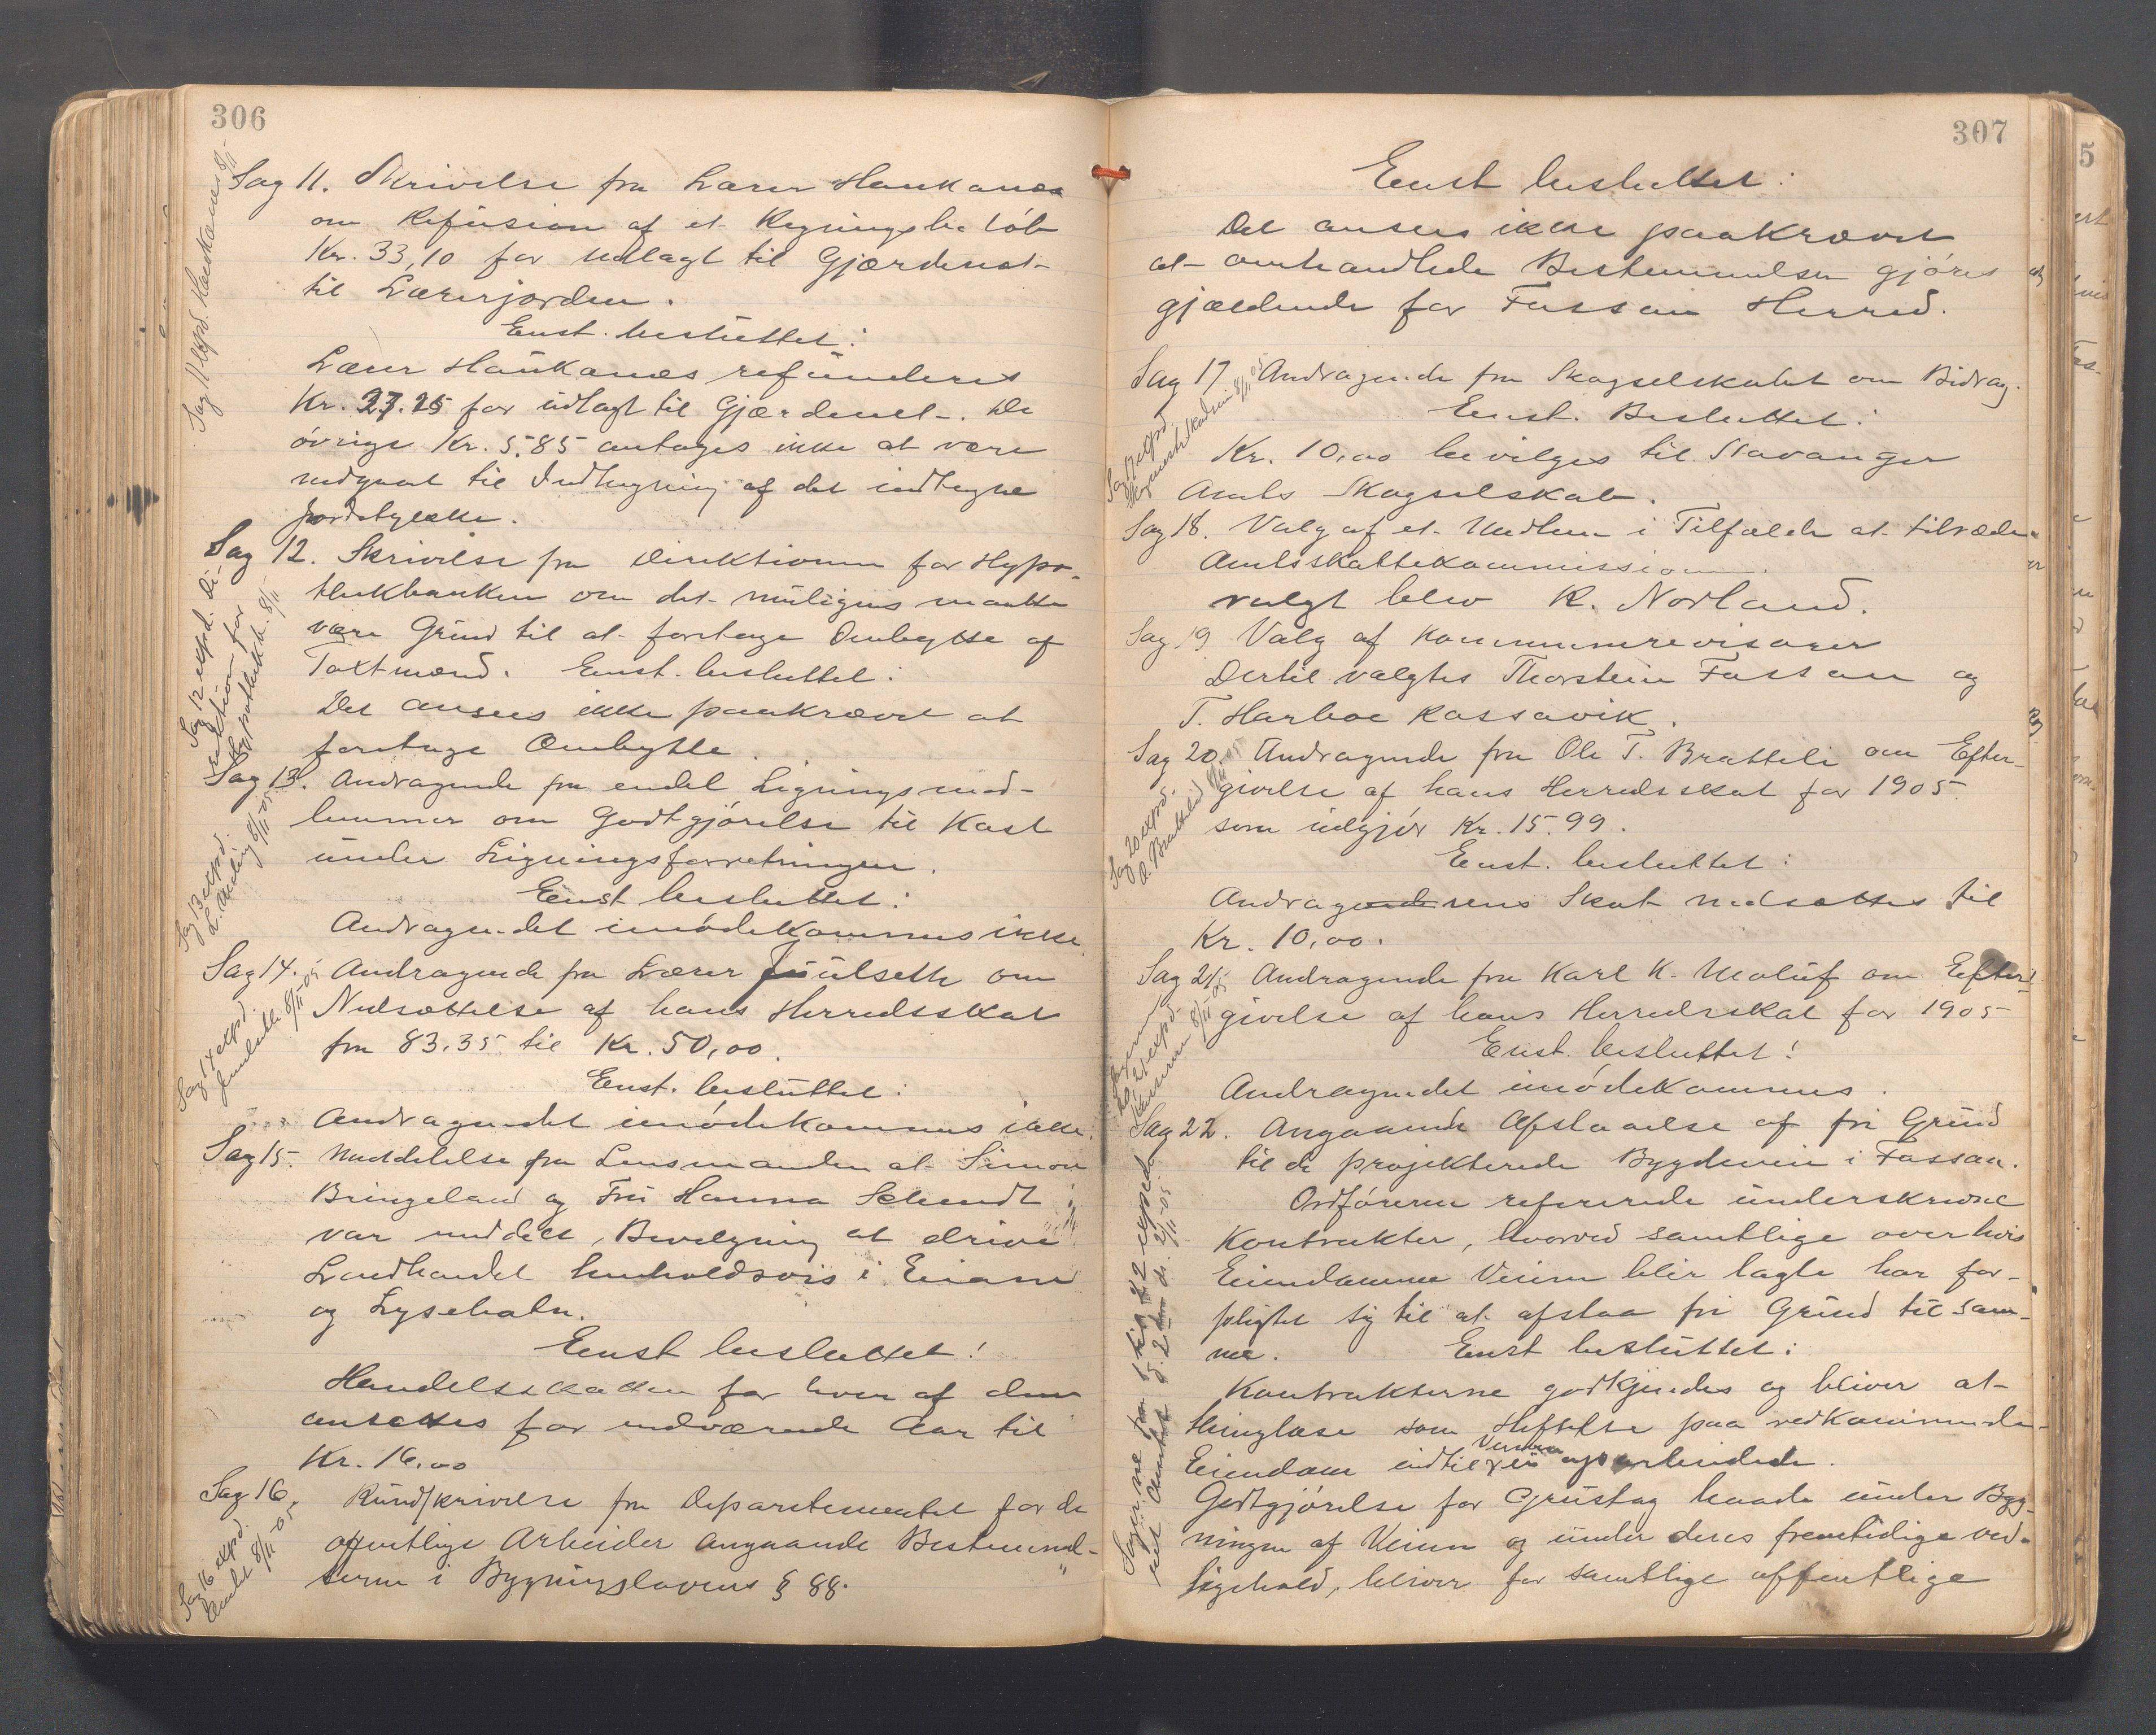 306
Sag 11. Skrivelse fra Lærer Haukanæs
om Refusion af et Regningsbeløb
Kr. 33,10 for Udlagt til Gjærdenet
til Lærerjorden.
Enst. besluttet:
Lærer Haukanæs refunderes
Kr. 27.25 for udlagt til Gjærdenet. De
øvrige Kr. 5.85 antages ikke at være
medgaat til Indhegning af det indhegne
Jordstykke.
Sag 12. Skrivelse fra Direktionen for Hypo-
thekbanken om det muligens maatte
være Grund til at foretage Ombytte af
Taxtmænd. Enst. besluttet:
Det ansees ikke paakrævet at
foretage Ombytte.
Sag 13. Andragende fra endel Ligningsmed-
lemmer om Godtgjørelse til Kost
under Ligningsforretningen.
Enst besluttet:
Andragendet imødekommes ikke
Sag 14. Andragende fra Lærer Juulseth om
Nedsættelse af hans Herredsskat
fra 83.35 til Kr. 50,00.
Enst. besluttet:
Andragendet imødekommes ikke.
Sag 15. Meddelelse fra Lensmanden at Simon
Bringeland og Fru Hanna Schmidt
var meddelt Bevilgning at drive
Landhandel henholdsvis i Eiane
og Lysebotn.
Enst besluttet!
Handelsskatten for hver af dem
ansættes for indværende Aar til
Kr. 16.00
Sag 16. Rundskrivelse fra Departementet for de
offentlige Arbeider angaande Bestemmel-
serne i Bygningslovens § 88.
Sag 11 expd. Haukanæs 8/11
Sag 12 expd. Di-
rektion for
Hypothekbk. 8/11
Sag 13 expd.
L. Meling 8/11 05
Sag 14 expd.
Juulseth 8/11-05
Sag 16 expd.
Amtet 8/11-05
307
Enst besluttet:
Det ansees ikke paakrævet
at omhandlede Bestemmelser gjøres
gjældende for Fossan Herred.
Sag 17 Andragende fra Skogselskabet om Bidrag.
Enst. Besluttet:
Kr. 10,00 bevilges til Stavanger
Amts Skogselskab.
Sag 18. Valg af et Medlem i Tilfælde at tiltræde
Amtsskattekommissionen.
valgt blev K. Norland.
Sag 19 Valg af Kommunerevisorer
Dertil valgtes Thorstein Fossan og
T. Harboe Rossavik.
Sag 20. Andragende fra Ole T. Bratteli om Efter-
givelse af hans Herredsskat for 1905
som udgjør Kr. 15.99.
Enst. besluttet:
Andragerens Skat nedsættes til
Kr. 10,00.
Sag 21. Andragende fra Karl K. Moluf om Efter-
givelse af hans Herredsskat for 1905
Enst. besluttet!
Andragendet imødekommes.
Sag 22. Angaaende Afstaaelse af fri Grund
til de projekterede Bygdeveie i Fossan.
Ordføreren refererede underskrevne
Kontrakter, hvorved samtlige over hvis
Eiendomme Veien blir lagte har for-
pligtet sig til at afstaa fri Grund til sam-
me. Enst besluttet:
Kontrakterne godkjendes og bliver at
thinglæse som Heftelse paa vedkommende
Eiendom indtil Veien er oparbeidede.
Godtgjørelse for Grustag baade under Byg-
ningen af Veien og under deres fremtidige ved-
ligehold, bliver for samtlige offentlige
Sag 17 expd.
8/11 05
Sag 20 expd.
O. Bratteli 8/11 05
Sag 21 expd.
8/11 05